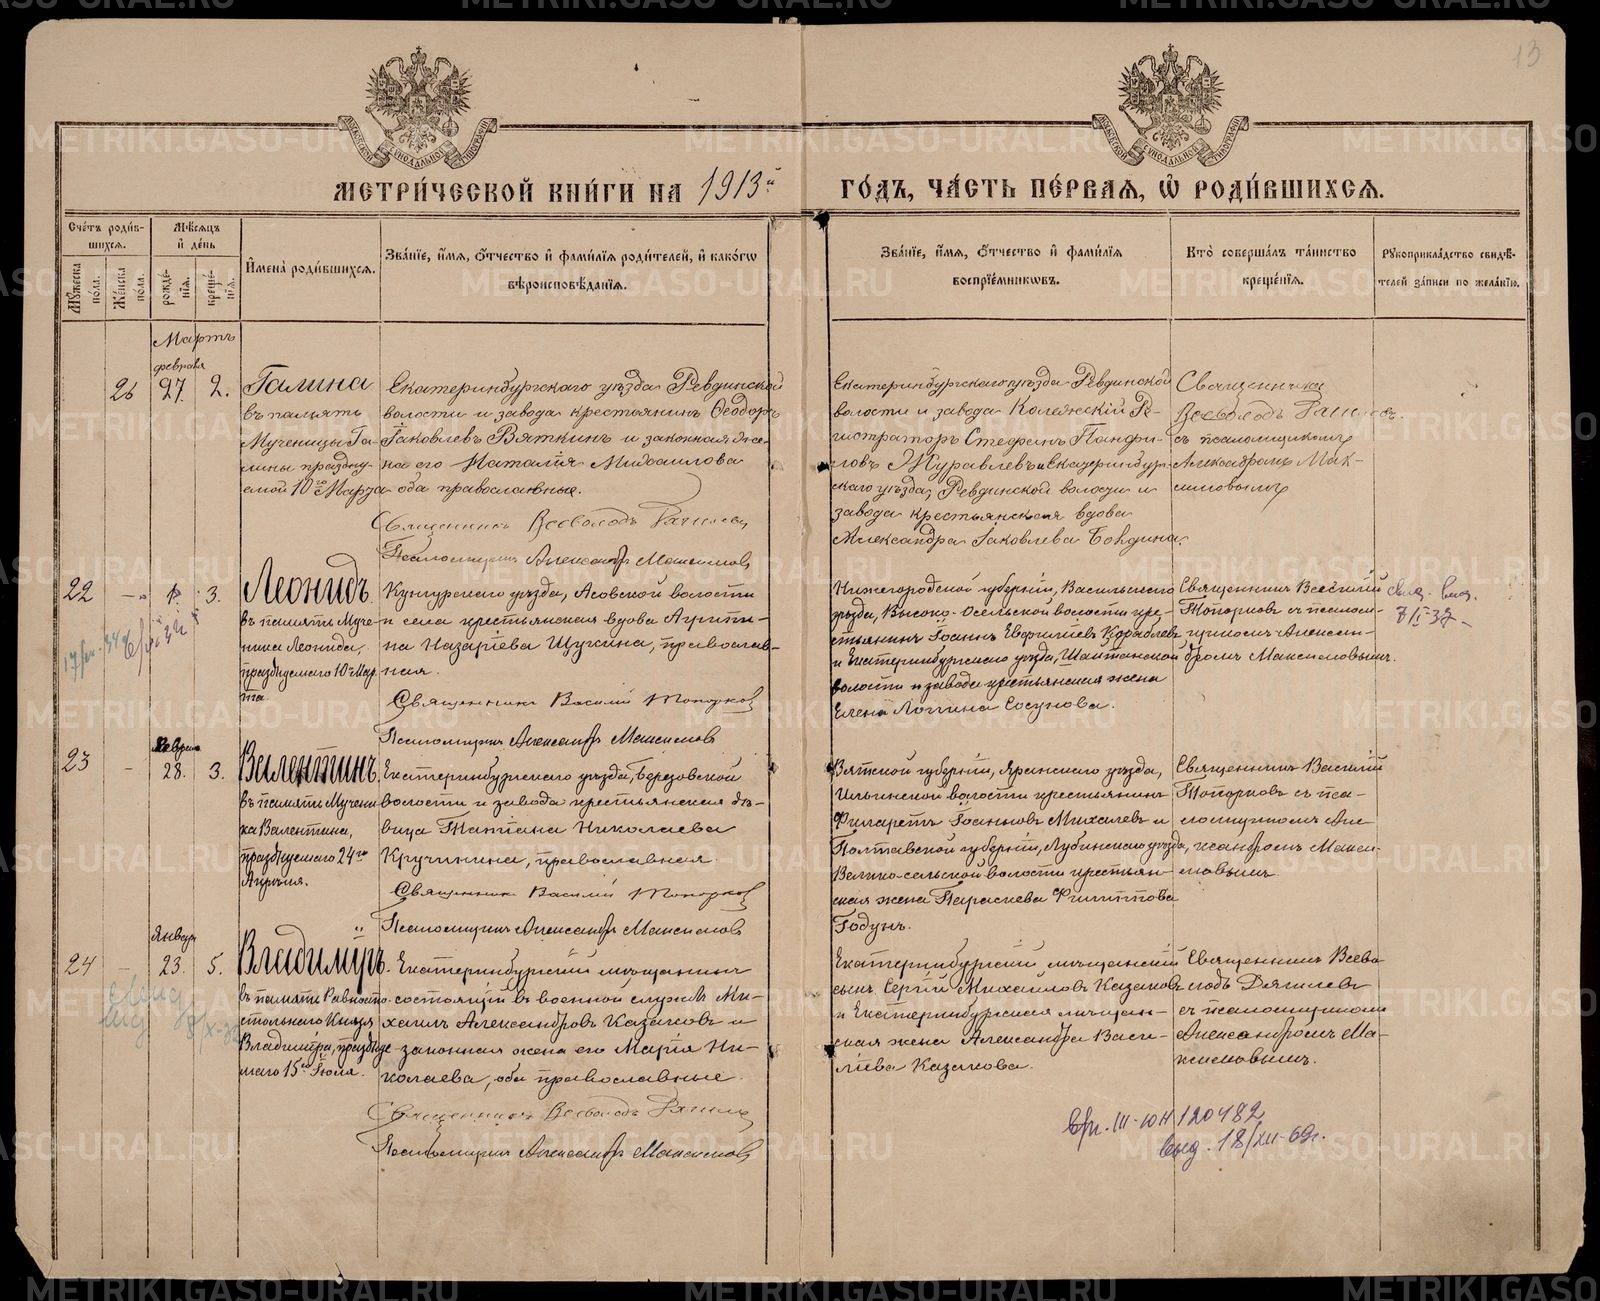 13
МЕТРИЧЕСКОЙ КНИГИ НА 1913й ГОДЪ, ЧАСТЬ ПЕРВАЯ, Ѡ РОДИВШИХСЯ.
Счетъ родив-
шихся.
Мужеска пола.
Женска пола.
Мѣсяцъ и день
рожде-
нія.
креще-
нія.
Имена родившихся.
Званіе, имя, отчество и фамилія родителей, и какогѡ
вѣроисповѣданія.
Званіе, имя, отчество и фамилія
воспріемникѡвъ.
Кто совершалъ таинство
крещенія.
Рукоприкладство свидѣ-
телей записи по желанію.
Мартъ
февраля
26 27. 2.
Галина
въ память
Мученицы Га-
лины праздну-
емой 10го Марта
Екатеринбургскаго уѣзда Ревдинской
волости и завода крестьянинъ Ѳеодоръ
Іаковлевъ Вяткинъ и законная же-
на его Наталія Михаилова
оба православные.
Священникъ Всеволодъ
Псаломщикъ Александръ Максимовъ
Екатеринбургскаго уѣзда Ревдинской
волости и завода Коллежскій Ре-
гистраторъ Стефанъ Панфи-
ловъ Журавлевъ и Екатеринбург-
скаго уѣзда, Ревдинской волости и
завода крестьянская вдова
Александра Іаковлева
Священникъ
Всеволодъ
съ псаломщикомъ
Александромъ Мак-
симовымъ
22 - 1. 3.
Леонидъ
въ память Муче-
ника Леонида,
празднуемаго 10го Мар-
та.
Кунгурскаго уѣзда, Асовской волости
и села крестьянская вдова Агрипи-
на Назаріева Щукина, православ-
ная.
Священникъ Василій Топорковъ
Псаломщикъ Александръ Максимовъ
Нижегородской губерніи, Васильскаго
уѣзда, Высоко-Осельской волости кре-
стьянинъ Іоаннъ Евфиміевъ Кораблевъ
и Екатеринбургскаго уѣзда, Шайтанской
волости и завода крестьянская жена
Елена Логгина Сосунова.
Священникъ Василій
Топорковъ съ псалом-
щикомъ Алексан-
дромъ Максимовымъ.
7/I-37
Февраля
23 - 28. 3.
Валентинъ
въ память Мучени-
ка Валентина,
празднуемаго 24го
Апрѣля.
Екатеринбургскаго уѣзда, Березовской
волости и завода крестьянская дѣ-
вица Татіана Николаева
Кручинина, православная.
Священникъ Василій Топорковъ
Псаломщикъ Александръ Максимовъ
Вятской губерніи, Яранскаго уѣзда,
Ильинской волости крестьянинъ
Филаретъ Іоанновъ Михалевъ и
Полтавской губерніи, Лубинскаго уѣзда,
Велико-сельской волости крестьян-
ская жена Параскева Филиппова
Годунъ.
Священникъ Василій
Топорковъ съ пса-
ломщикомъ Але-
ксандромъ Макси-
мовымъ.
Января
24 - 23. 5.
Владиміръ.
въ память Равноапо-
стольнаго Князя
Владиміра, празднуе-
маго 15го Іюля.
Екатеринбургскій мѣщанинъ
состоящій въ военной службѣ Ми-
хаилъ Александровъ Казаковъ и
законная жена его Марія Ни-
колаева, оба православные.
Священникъ Всеволодъ
Псаломщикъ Александръ Максимовъ
Екатеринбургскій мѣщанскій
сынъ Сергій Михаиловъ Казаковъ
и Екатеринбургская мѣщан-
ская жена Александра Васи-
ліева Казакова.
Священникъ Всево-
лодъ
съ псаломщикомъ
Александромъ Ма-
ксимовымъ.
III-ЮН 120482
выд. 18/XII-69г.